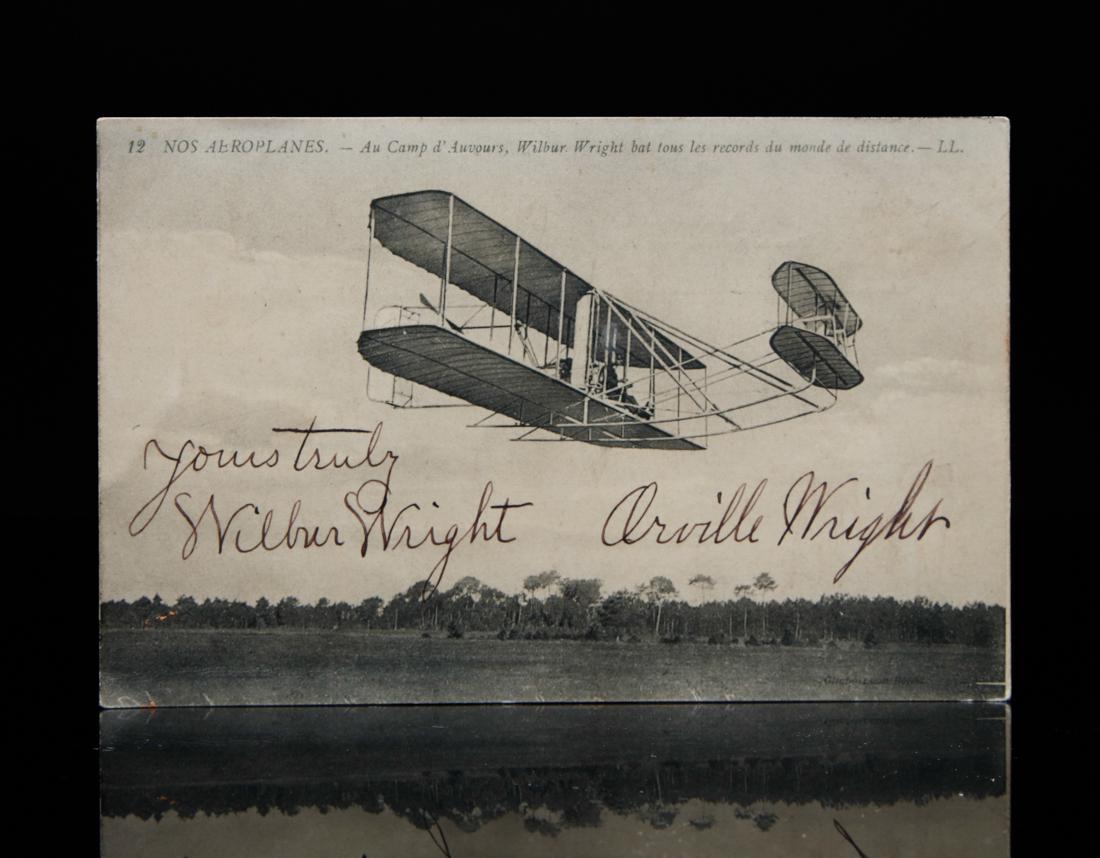 12 NOS AEROPLANES. — Au Camp d'Auvours, Wilbur Wright bat tous les records du monde de distance. — LL.
Yours truly
Wilbur Wright Orville Wright